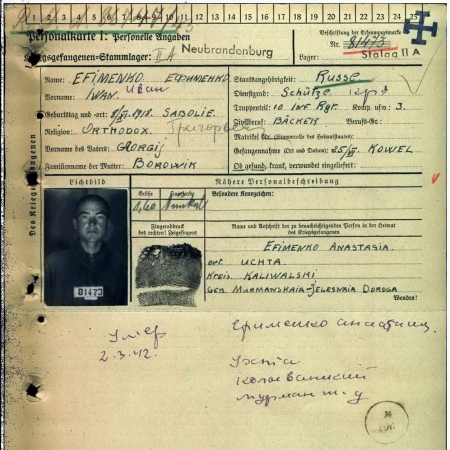 1 2 3 4 5 6 7 8 9 10 11 12 13 14 15 16 17 18 19 20 21 22 23 24 25
Personalkarte I: Personelle Angaben
Kriegsgefangenen-Stammlager: II A Neubrandenburg
Beschriftung der Erkennungsmarke
Nr. 81473
Lager: Stalag II A
Des Kriegsgefangenen
Name: EFIMENKO Ефименко
Vorname: IWAN Иван
Geburtstag und -ort: 1918. SABOLIE
Religion: ORTHODOX
Vorname des Vaters: GEORGIJ
Familienname der Mutter: BOROWIK
Staatsangehörigkeit: Russe
Dienstgrad: Schütze
Truppenteil: 10 Inf. Rgt. Komp. usw.: 3.
Zivilberuf: BÄCKER Berufs-Gr.:
Matrikel Nr. (Stammrolle des Heimatstaates):
Gefangennahme (Ort und Datum): KOWEL
Ob gesund, krank, verwundet eingeliefert:
Lichtbild
81473
Nähere Personalbeschreibung
Größe
1,60
Haarfarbe
Besondere Kennzeichen:
Fingerabdruck
des rechten! Zeigefingers!
Name und Anschrift der zu benachrichtigenden Person in der Heimat
des Kriegsgefangenen
EFIMENKO ANASTASIA.
ort UCHTA
Kreis KALIWALSKI
GEB. MURMANSKAIA-JELESNAIA DOROGA
Wenden!
Умер
2.3.42.
Ефименко
Ухта